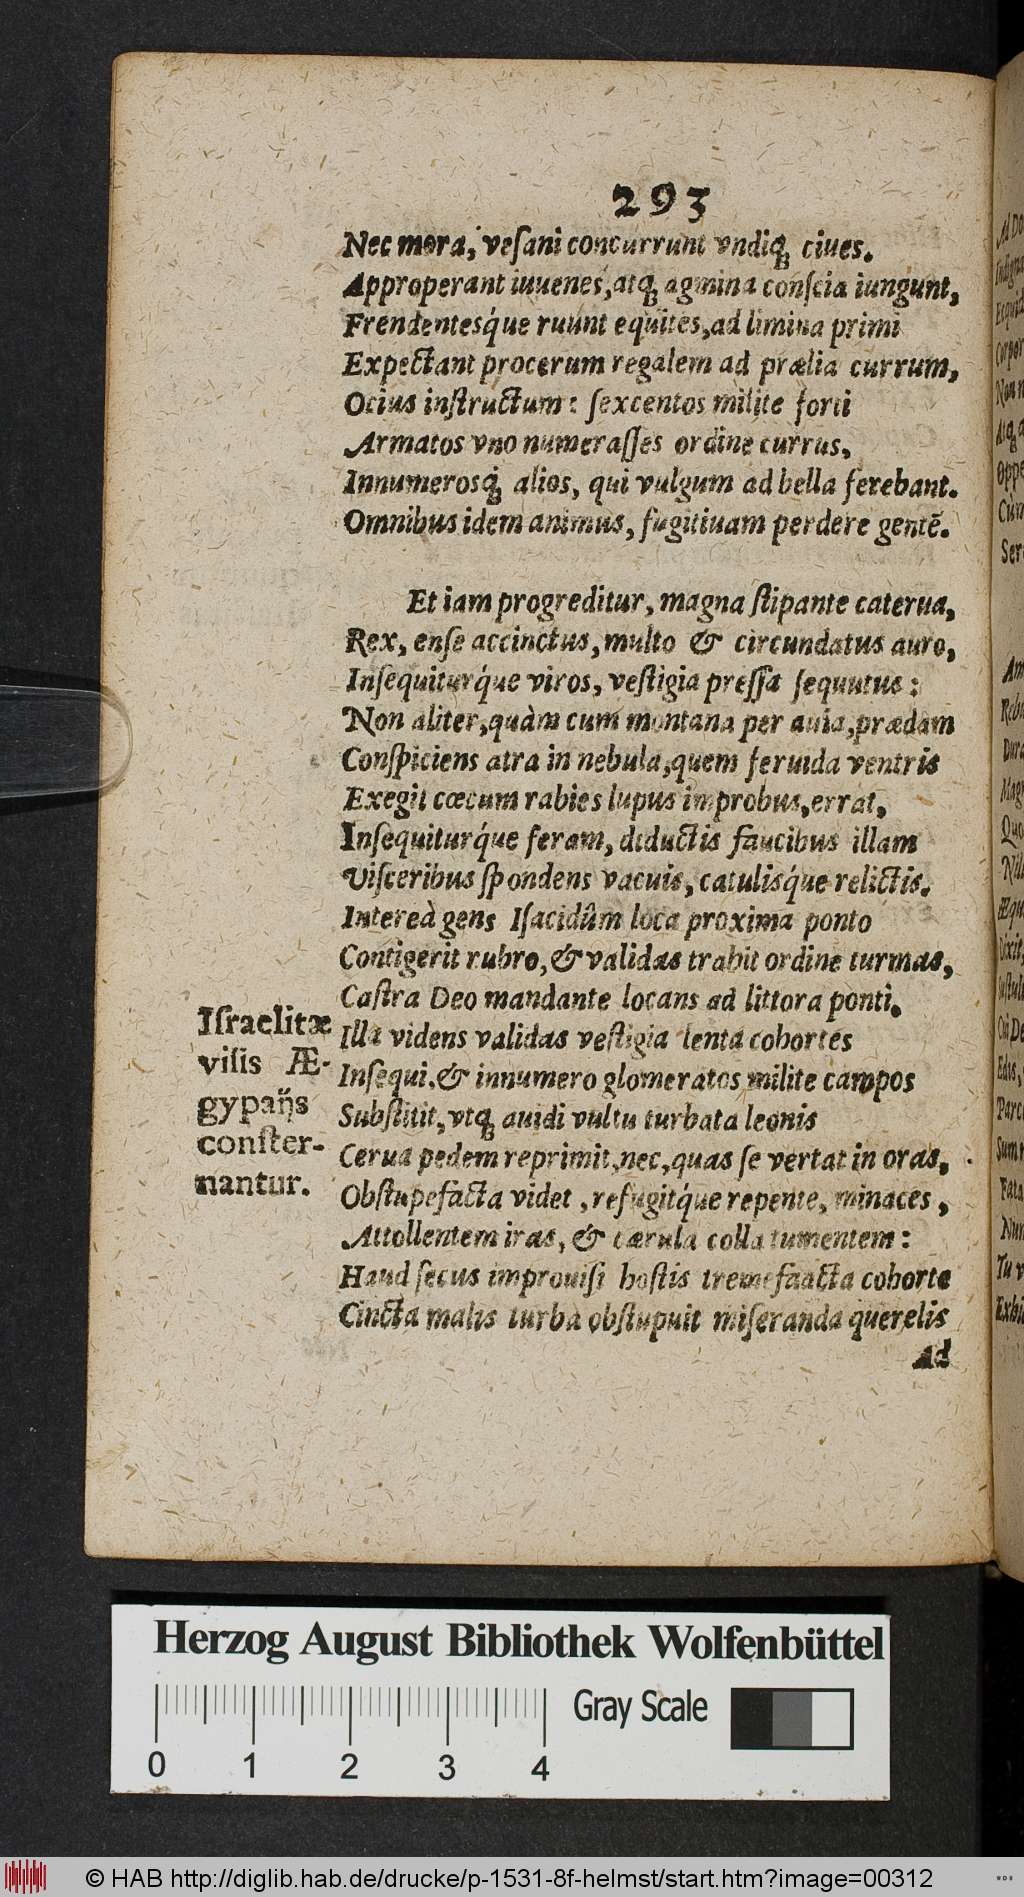 293
Nec mora, veſani concurrunt vndiq; ciues.
Approperant iuuenes, atq; agmina conſcia iungunt,
Frendentesq́ue ruunt equites, ad limina primi
Expectant procerum regalem ad prælia currum,
Ocius inſtructum: ſexcentos milite forti
Armatos vno numeraſſes ordine currus,
Innumerosq́; alios, qui vulgum ad bella ferebant.
Omnibus idem animus, fugitiuam perdere gentē.
Et iam progreditur, magna ſtipante caterua,
Rex, enſe accinctus, multo & circundatus auro,
Inſequiturq́ue viros, veſtigia preſſa ſequutus:
Non aliter, quàm cum montana per auia, prædam
Conſpiciens atra in nebula, quem feruida ventris
Exegit cœcum rabies lupus improbus, errat,
Inſequiturq́ue feram, diductis faucibus illam
Viſceribus ſpondens vacuis, catulisq́ue relictis.
Intereà gens Iſacidûm loca proxima ponto
Contigerit rubro, & validas trahit ordine turmas,
Caſtra Deo mandante locans ad littora ponti.
Iſraelitæ
viſis Æ-
gyptijs
conſter-
nantur.
Illa videns validas veſtigia lenta cohortes
Inſequi, & innumero glomeratos milite campos
Subſtitit, vtq; auidi vultu turbata leonis
Cerua pedem reprimit, nec, quas ſe vertat in oras,
Obſtupefacta videt, refugitq́ue repente, minaces,
Attollentem iras, & cærula colla tumentem:
Haud ſecus improuiſi hoſtis tremefaacta cohorte
Cincta malis turba obſtupuit miſeranda querelis
Ad
Herzog August Bibliothek Wolfenbüttel
Gray Scale
0 1 2 3 4
© HAB http://diglib.hab.de/drucke/p-1531-8f-helmst/start.htm?image=00312